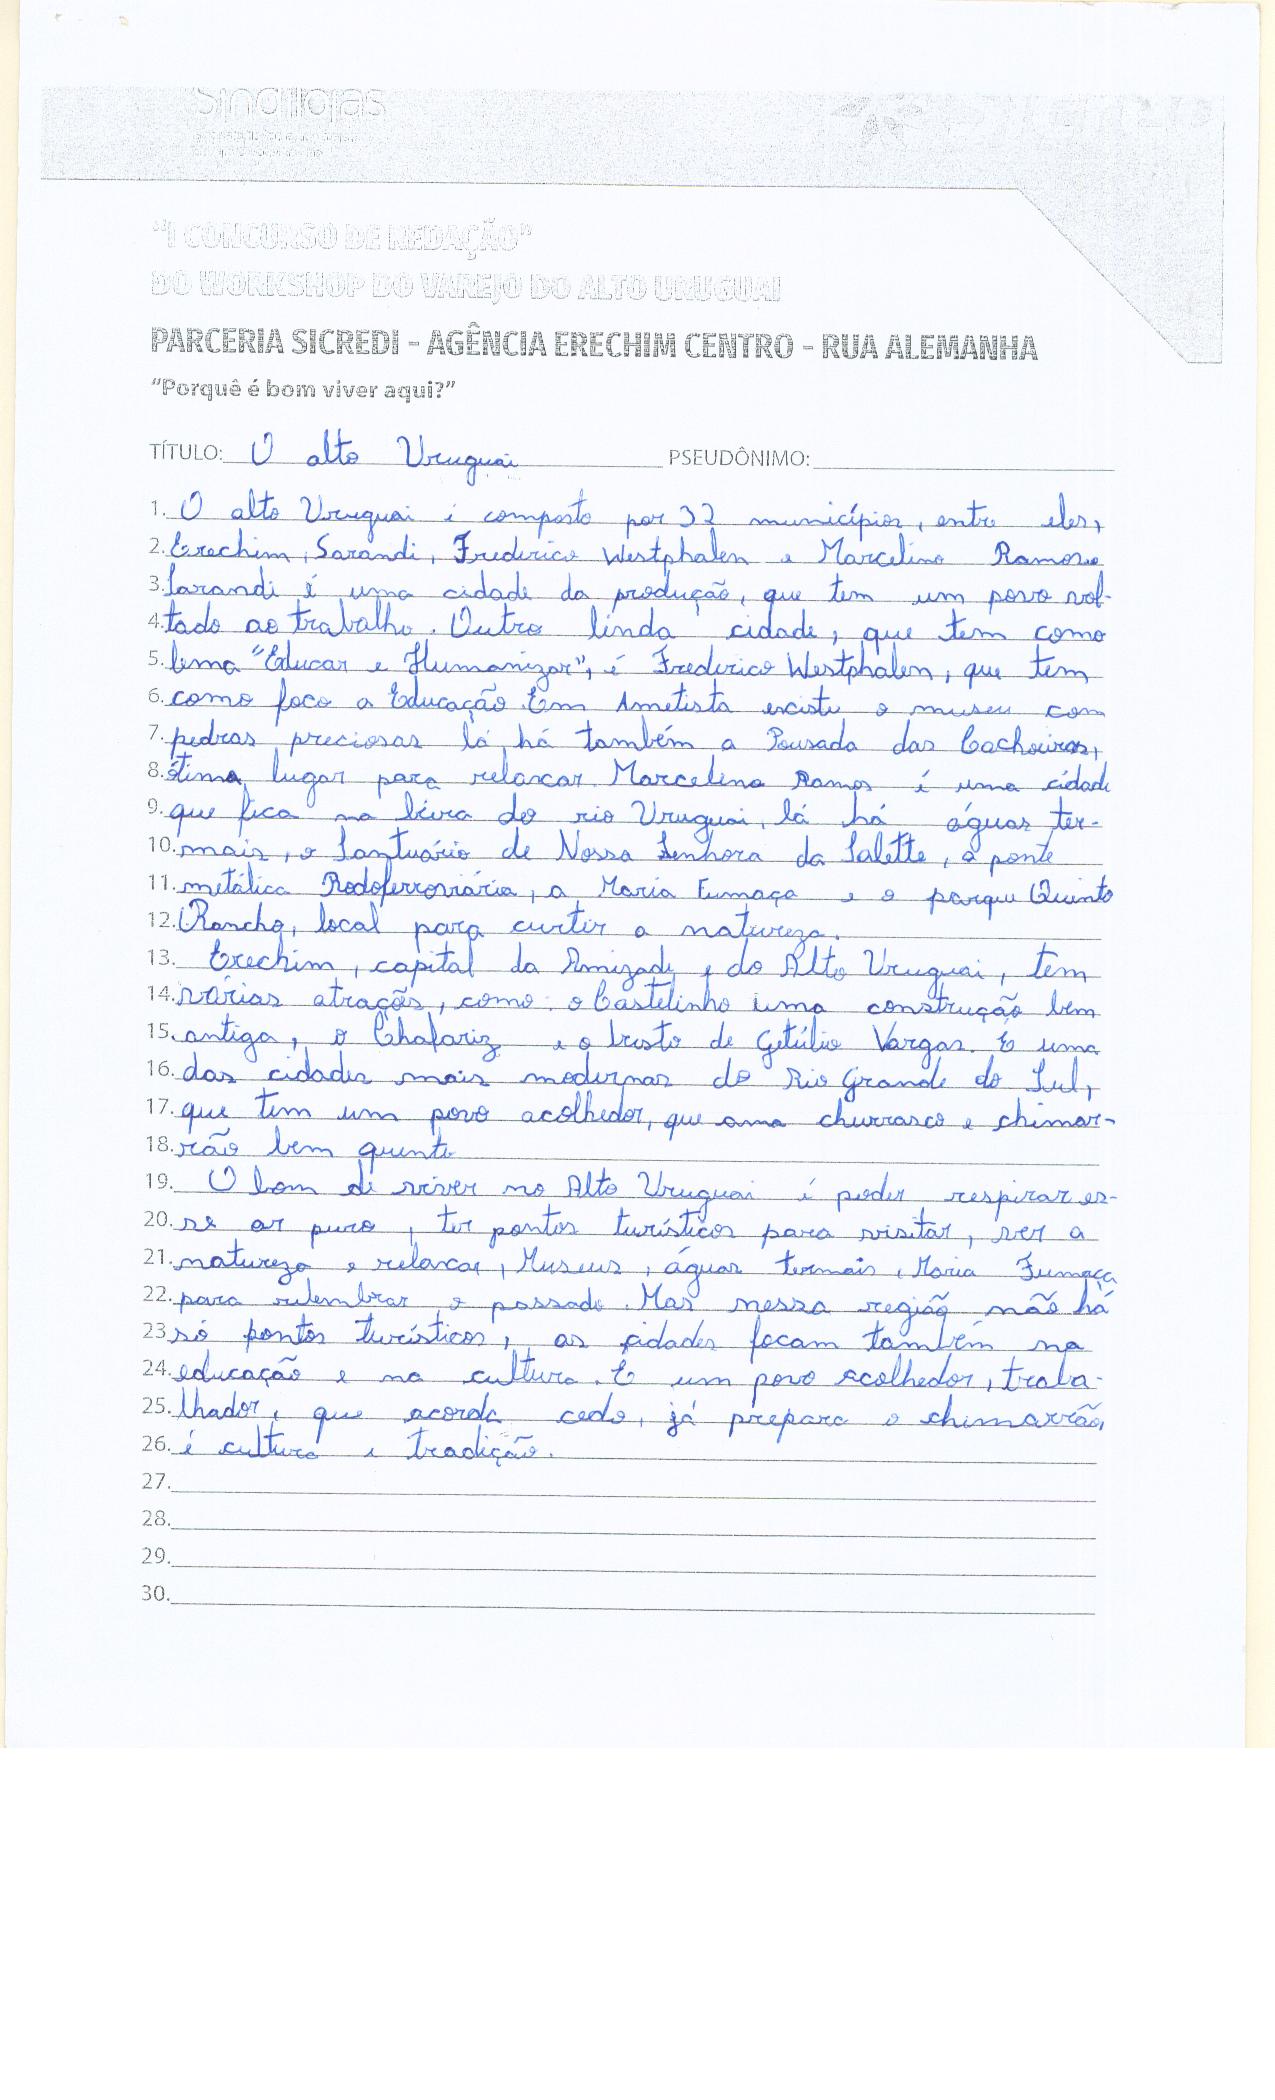 Sindilojas
"I CONCURSO DE REDAÇÃO"
DO WORKSHOP DO VAREJO DO ALTO URUGUAI
PARCERIA SICREDI - AGÊNCIA ERECHIM CENTRO - RUA ALEMANHA
"Porquê é bom viver aqui?"
TÍTULO: O alto Uruguai PSEUDÔNIMO:
1. O alto Uruguai é composto por 32 municípios, entre eles,
2. Erechim, Sarandi, Frederico Westphalen e Marcelino Ramos.
3. Sarandi é uma cidade da produção, que tem um povo vol-
4. tado ao trabalho. Outra linda cidade, que tem como
5. lema "Educar e Humanizar", é Frederico Westphalen, que tem
6. como foco a Educação. Em Ametista existe o museu com
7. pedras preciosas lá há também a Pousada das Cachoeiras,
8. ótimo lugar para relaxar. Marcelino Ramos é uma cidade
9. que fica na beira do rio Uruguai, lá há águas ter-
10. mais, o Santuário de Nossa Senhora da Salette, a ponte
11. metálica Rodoferroviária, a Maria Fumaça e o parque Quinto
12. Rancho, local para curtir a natureza.
13. Erechim, capital da Amizade, e do Alto Uruguai, tem
14. várias atrações, como: o Castelinho uma construção bem
15. antiga, o Chafariz e o busto de Getúlio Vargas. É uma
16. das cidades mais modernas do Rio Grande do Sul,
17. que tem um povo acolhedor, que ama churrasco e chimar-
18. rão bem quente
19. O bom de viver no Alto Uruguai é poder respirar es-
20. se ar puro, ter pontos turísticos para visitar, ver a
21. natureza e relaxar, Museus, águas termais, Maria Fumaça
22. para relembrar o passado. Mas nessa região não há
23. só pontos turísticos, as cidades focam também na
24. educação e na cultura. É um povo acolhedor, traba-
25. lhador, que acorda cedo, já prepara o chimarrão,
26. é cultura e tradição.
27.
28.
29.
30.